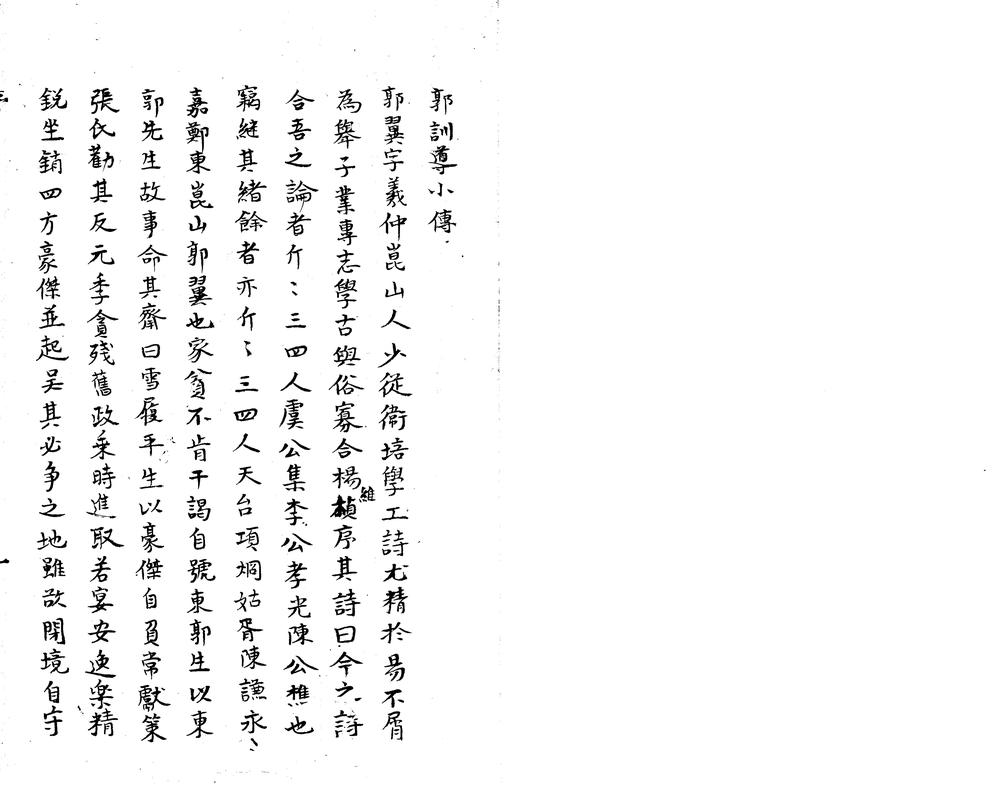 郭訓導小傳
郭翼字羲仲崑山人少從衛培學工詩尤精於易不屑
為舉子業專志學古與俗寡合楊維楨序其詩曰今之詩
合吾之論者斤〻三四人虞公集李公孝光陳公樵也
竊継其緒餘者亦斤〻三四人天台項烱姑胥陳謙永〻
嘉鄭東崑山郭翼也家貧不肯干謁自號東郭生以東
郭先生故事命其齋曰雪履平生以豪傑自負常獻策
張氏勸其反元季貪殘舊政乘時進取若宴安逸楽精
鋭坐銷四方豪傑並起吴其必争之地雖欲閉境自守